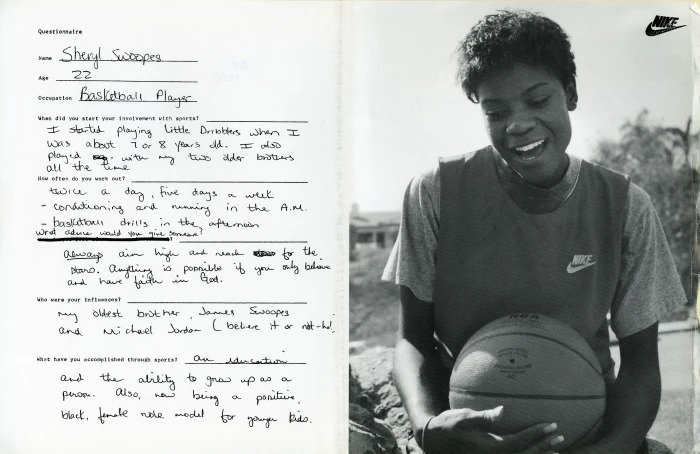 Questionnaire
Name Sheryl Swoopes
Age 22
Occupation Basketball Player
When did you start your involvement with sports?
I started playing Little Dribblers when I
was about 7 or 8 years old. I also
played with my two older brothers
all the time
How often do you work out?
twice a day, five days a week
- conditioning and running in the A.M.
- basketball drills in the afternoon
What advice would you give someone?
Always aim high and reach for the
stars. Anything is possible if you only believe
and have faith in God.
Who were your influences?
my oldest brother, James Swoopes
and Michael Jordan (believe it or not-ha!
What have you accomplished through sports? an education
and the ability to grow up as a
person. Also, now being a positive,
black, female role model for younger kids.
NIKE
NIKE
NBA